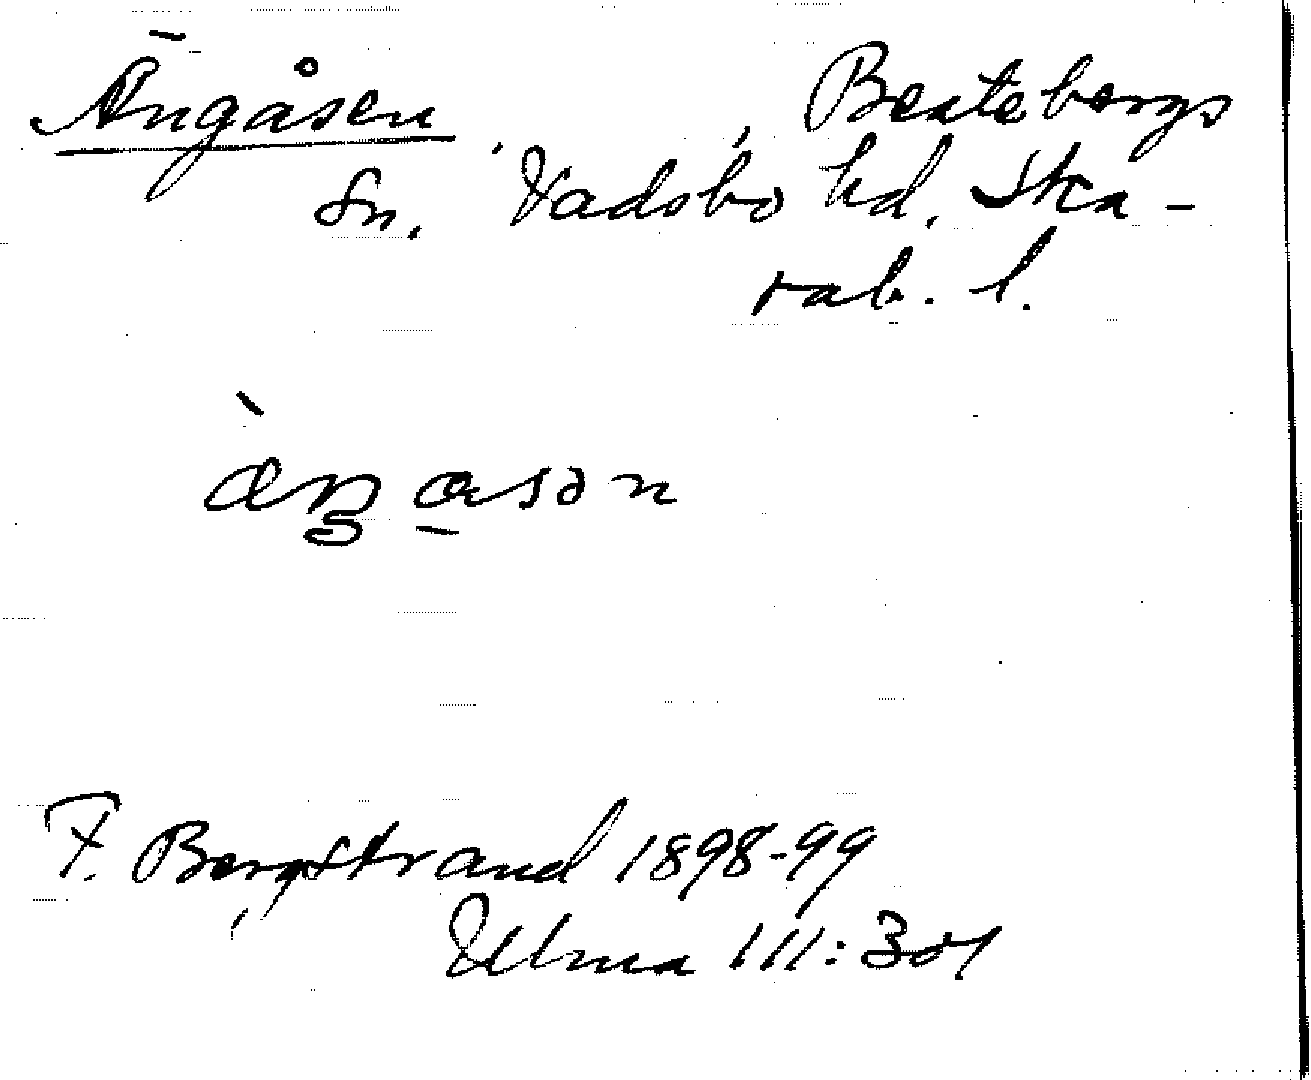 Ängåsen, Beatebergs
Sn. Vadsbo hd. Ska-
rab. l.
F. Bergstrand 1898-99
Ulma 111:301